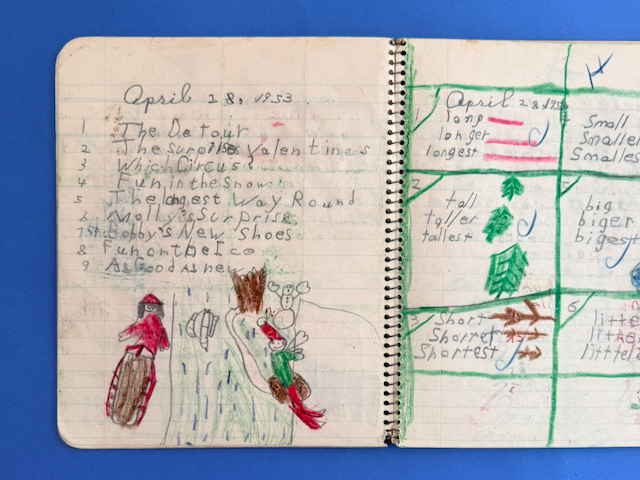 April 28, 1953
1 The Detour
2 The surprise Valentimes
3 Which Circus?
4 Fun in the Snow!
5 The longest Way Round
6 Molly's Surprise
7 Bobby's New Shoes
8 Fun on the Ice
9 As Good As new
April 28, 1953
1
long
longer
longest
Small
Smaller
Smalles
2
tall
taller
tallest
big
biger
bigest
3
Short
Shorter
Shortest
6
little
littler
littlest